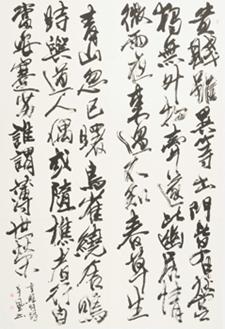 貴賤雖異等出門皆有營
獨無外物牽遂此幽居情
微雨夜來過不知春草生
青山忽已曙鳥雀繞舍鳴
時與道人偶或隨樵者行自
當安蹇劣誰謂薄世榮